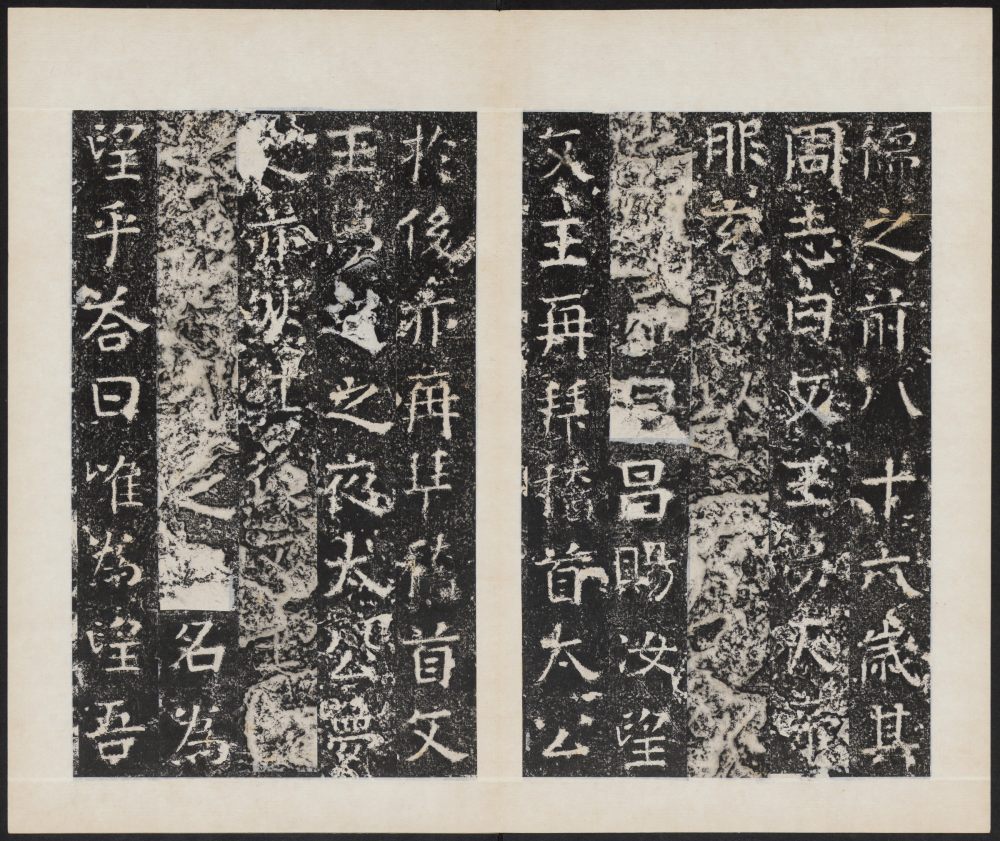 儒之前八十六歲其
周志曰文王夢天帝
服玄禳以
帝曰昌賜汝望
文王再拜稽首太公
於後亦再拜稽首文
王夢之之夜太公夢
之亦然其後文王
之名為
望乎答曰唯為望吾